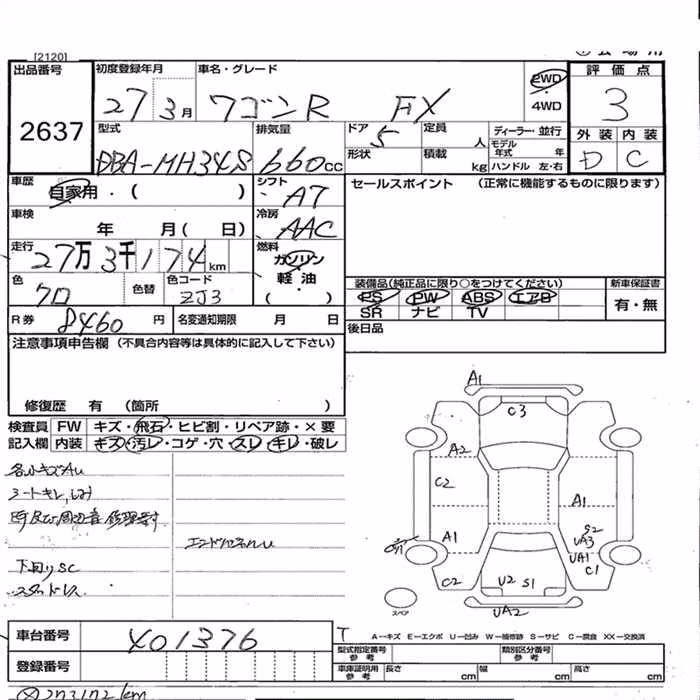 [2120]
出品番号
2637
初度登録年月
27 3月
車名・グレード
ワゴンR FX
2WD
・
4WD
評価点
3
外装 内装
D C
型式
DBA-MH34S
排気量
660cc
ドア
5
形状
定員
人
積載
kg
ディーラー・並行
モデル年式 年
ハンドル 左・右
車歴
自家用 ・( )
シフト
AT
車検
年 月( 日)
冷房
AAC
走行
27万3千174km
燃料
ガソリン
軽油
( )
色
クロ
色替
色コード
ZJ3
R券
8460円
名変通知期限 月 日
セールスポイント (正常に機能するものに限ります)
装備品(純正品に限り○をつけてください)
PS PW ABS エアB
SR ナビ TV
新車保証書
有・無
後日品
注意事項申告欄(不具合内容等は具体的に記入して下さい)
修復歴 有 (箇所 )
検査員記入欄
FW キズ・飛石・ヒビ割・リペア跡・×要
内装 キズ・汚レ・コゲ・穴・スレ・キレ・破レ
各小キズAU
シートキレ,しみ
下回りSC
スタッドレス
A1
C3
A2
C2
A1
A1
S2
UA3
UA1
C1
C2
U2 S1
UA2
スペア
車台番号
401376
登録番号
T
A―キズ E―エクボ U―凹み W―補修跡 S―サビ C―腐食 XX―交換済
型式指定番号参考
類別区分番号参考
車庫証明用参考
長さ cm
幅 cm
高さ cm
273172km